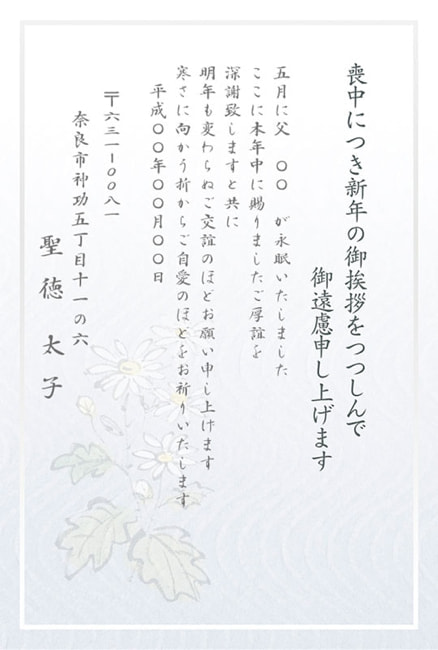 喪中につき新年の御挨拶をつつしんで
御遠慮申し上げます
五月に父 〇〇 が永眠いたしました
ここに本年中に賜りましたご厚誼を
深謝致しますと共に
明年も変わらぬご交誼のほどお願い申し上げます
寒さに向かう折からご自愛のほどをお祈りいたします
平成〇〇年〇〇月〇〇日
〒六三一ー〇〇八一
奈良市神功五丁目十一の六
聖徳太子